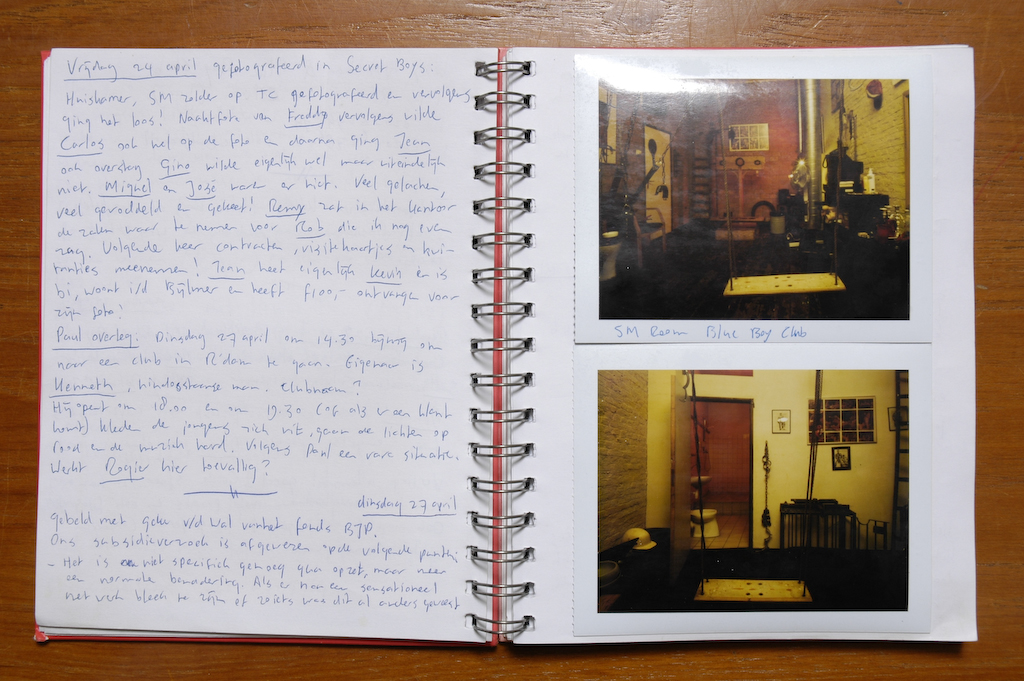 Vrijdag 24 april gefotografeerd in Secret Boys:
Huiskamer, SM zolder op TC gefotografeerd en vervolgens
ging het los! Naaktfoto van Freddy vervolgens wilde
Carlos ook wel op de foto en daarna ging Jean
ook overstag Gino wilde eigenlijk wel maar uiteindelijk
niet. Miguel en José waren er niet. Veel gelachen,
veel geroddeld en gekeet! Remy zat in het kantoor
de zaken waar te nemen voor Rob die ik nog even
zag. Volgende keer contracten, visitekaartjes en kwi-
tanties meenemen! Jean heet eigenlijk Kevin en is
bi, woont i/d Bijlmer en heeft f100,- ontvangen voor
zijn foto!
Paul overleg: Dinsdag 27 april om 14.30 bij mij om
naar een club in R'dam te gaan. Eigenaar is
Kenneth, hindoestaanse man. Clubnaam?
Hij opent om 18.00 en om 19.30 (of als er een klant
komt) kleden de jongens zich uit, gaan de lichten op
rood en de muziek hard. Volgens Paul een rare situatie.
Werkt Rogier hier toevallig?
dinsdag 27 april
Gebeld met v/d Wal van het fonds BJP.
Ons subsidieverzoek is afgewezen op de volgende punten:
- Het is niet specifiek genoeg qua opzet, maar meer
een normale benadering. Als er nou een sensationeel
netwerk bleek te zijn of zoiets was dit al anders geweest
SM Room Blue Boy Club